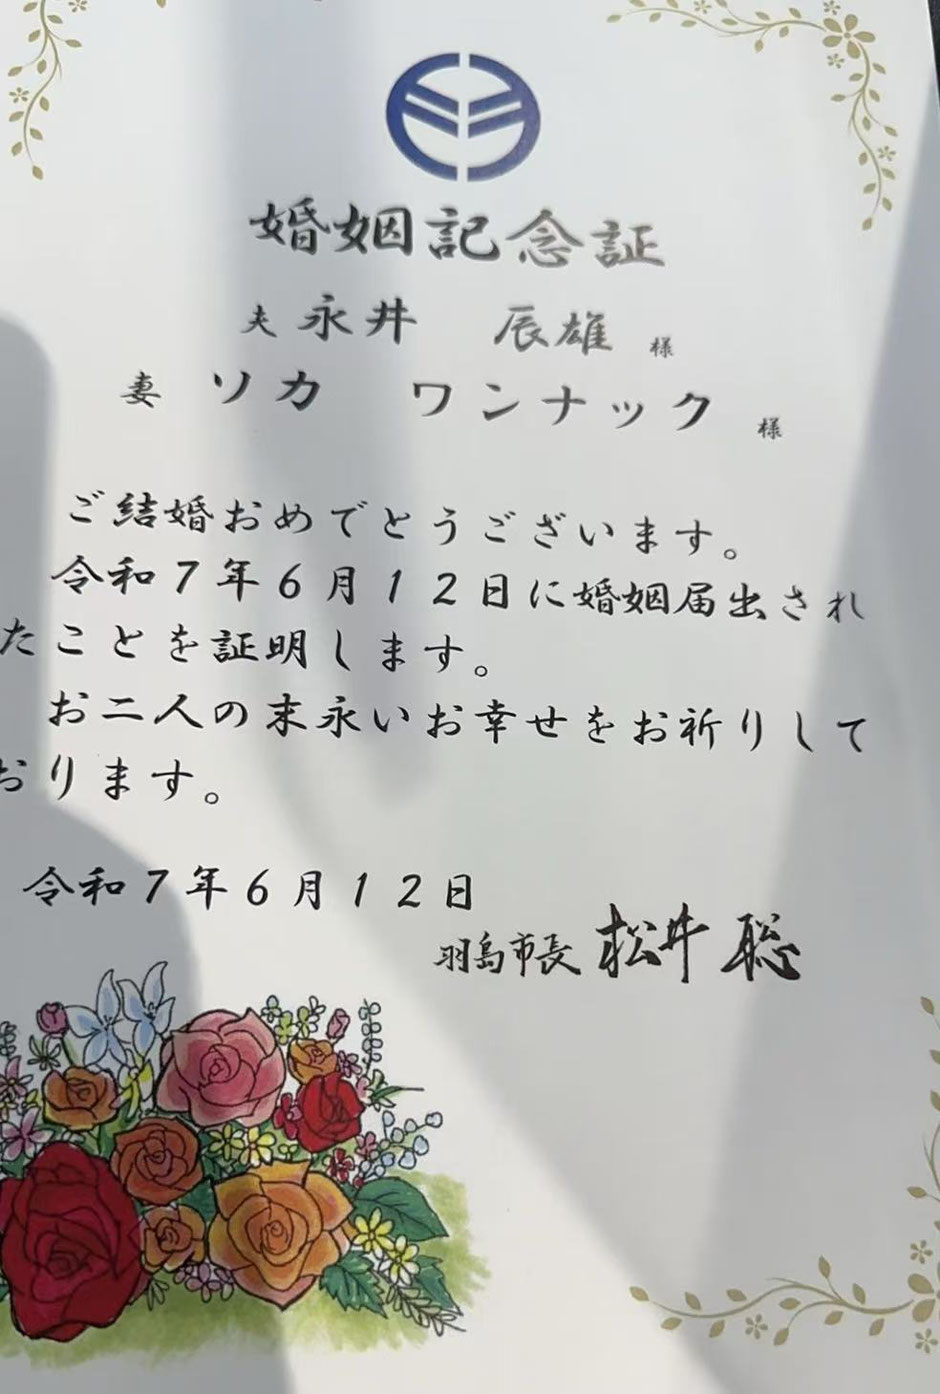 婚姻記念証
夫 永井 辰雄 様
妻 ソカ ワンナック 様
ご結婚おめでとうございます。
令和7年6月12日に婚姻届出され
たことを証明します。
お二人の末永いお幸せをお祈りして
おります。
令和7年6月12日
羽島市長 松井 聡